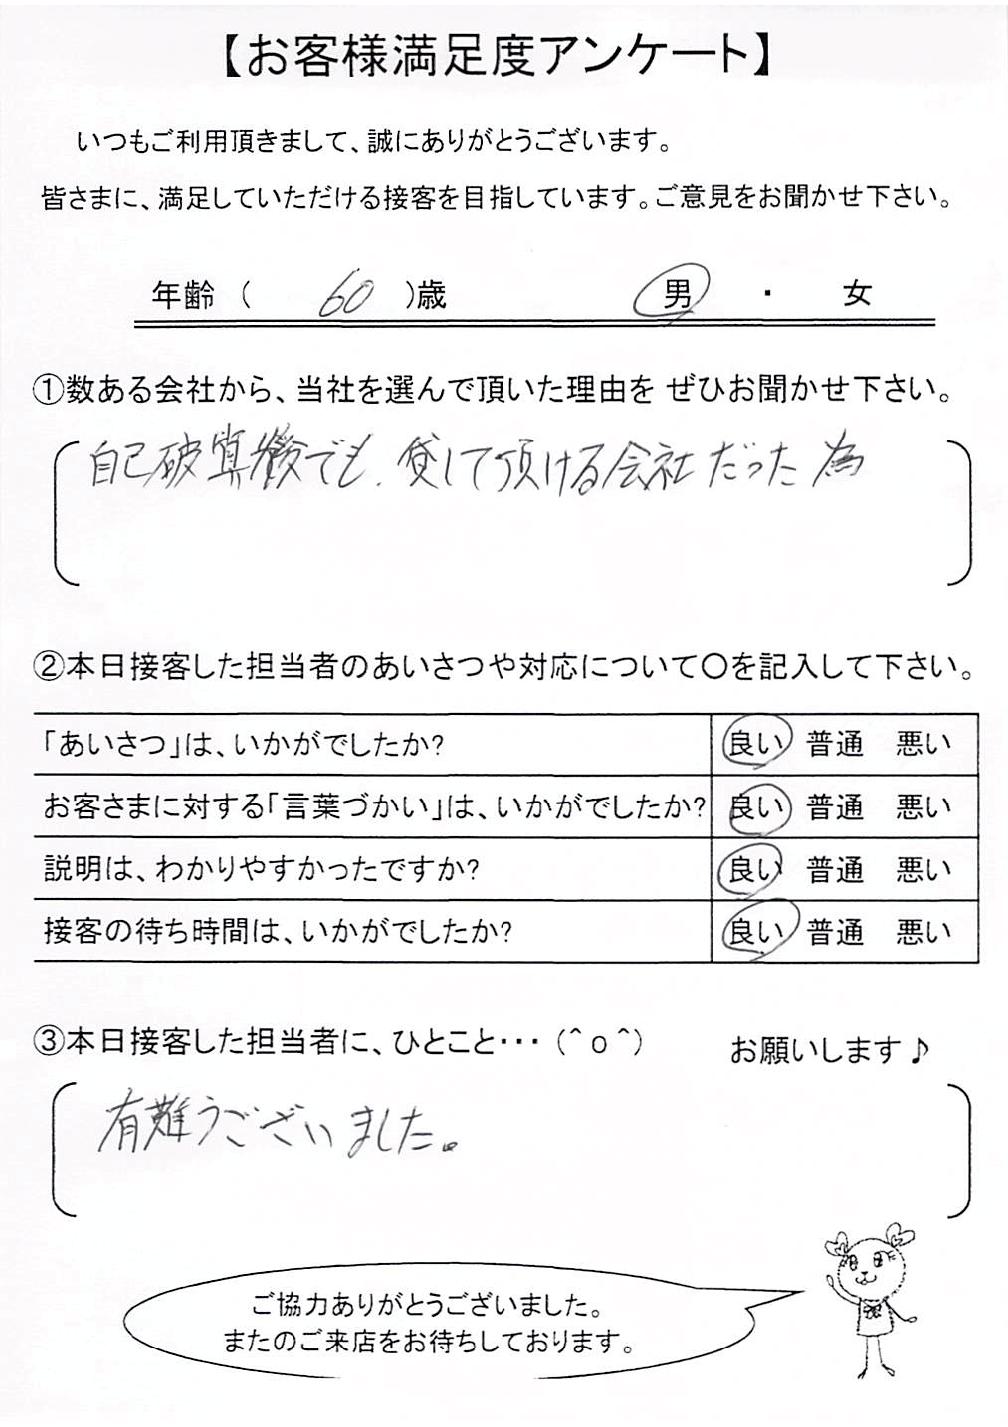 【お客様満足度アンケート】
いつもご利用頂きまして、誠にありがとうございます。
皆さまに、満足していただける接客を目指しています。ご意見をお聞かせ下さい。
年齢 ( 60 )歳 男 ・ 女
①数ある会社から、当社を選んで頂いた理由を ぜひお聞かせ下さい。
自己破算歴でも、貸して頂ける会社だった為
②本日接客した担当者のあいさつや対応について〇を記入して下さい。
「あいさつ」は、いかがでしたか? 良い 普通 悪い
お客さまに対する「言葉づかい」は、いかがでしたか? 良い 普通 悪い
説明は、わかりやすかったですか? 良い 普通 悪い
接客の待ち時間は、いかがでしたか? 良い 普通 悪い
③本日接客した担当者に、ひとこと・・・ (^o^) お願いします♪
有難うございました。
ご協力ありがとうございました。
またのご来店をお待ちしております。